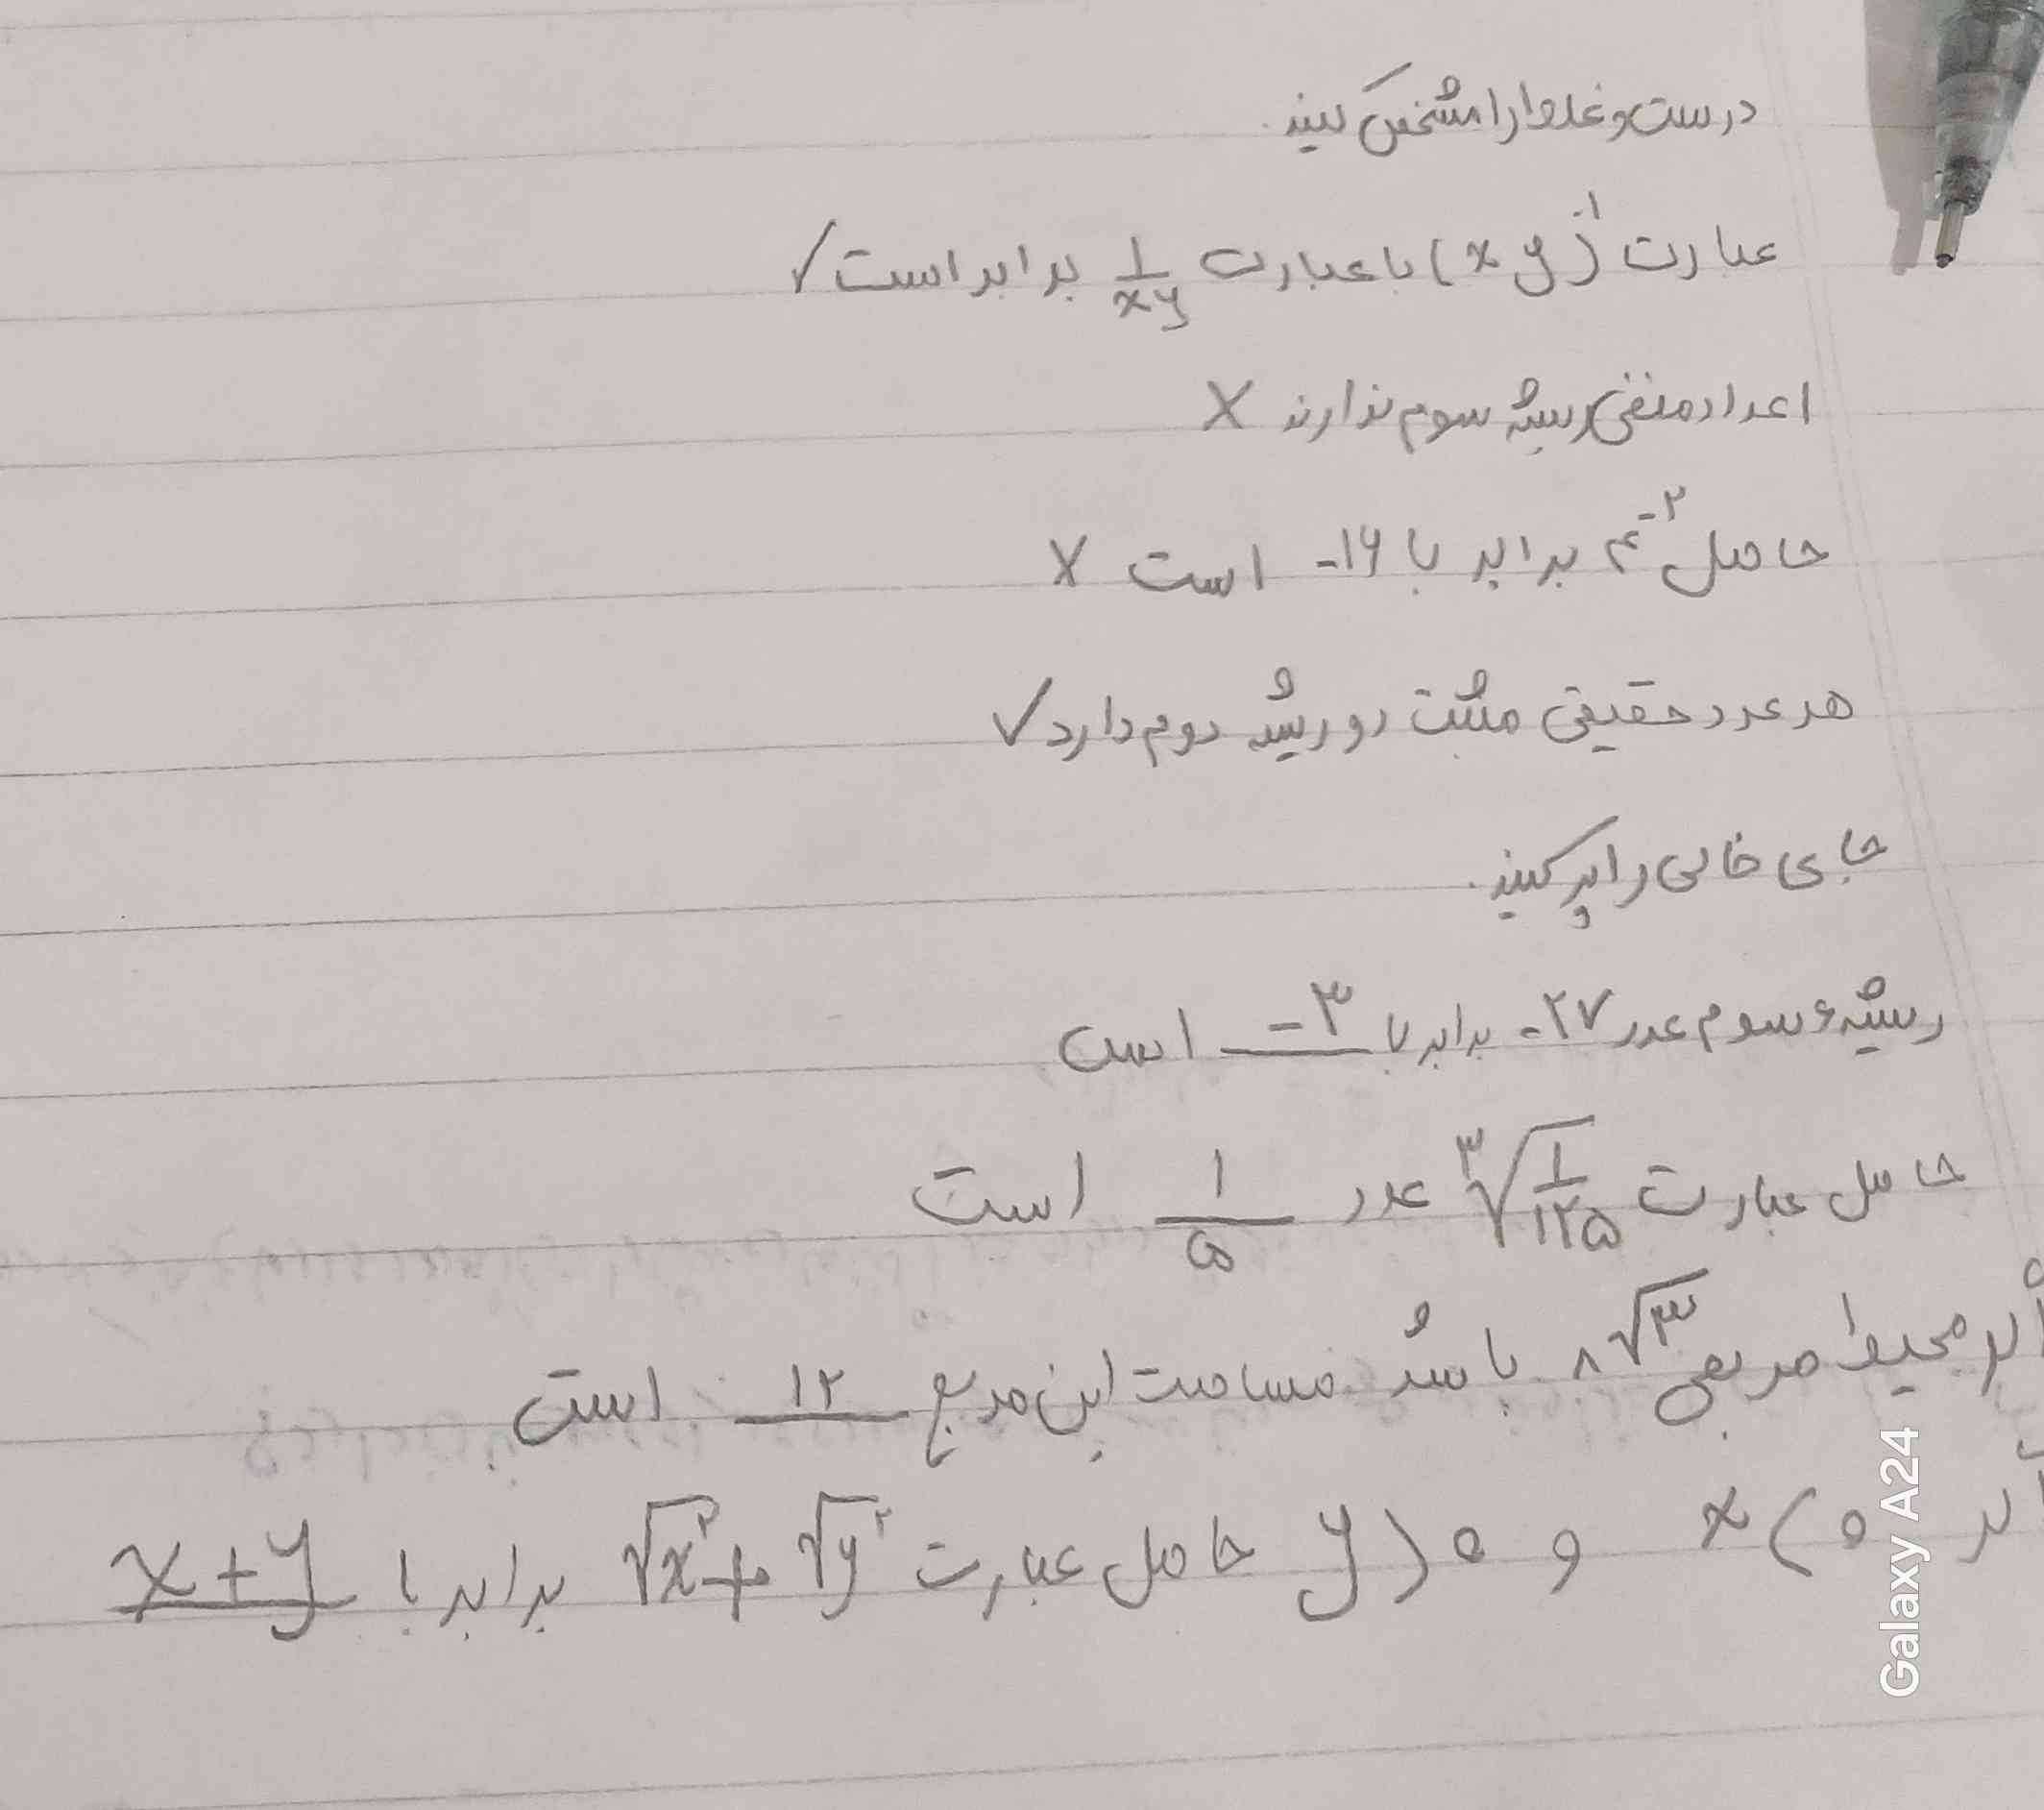 درست و غلط را مشخص کنید.
عبارت (xy)⁻¹ با عبارت 1/xy برابر است ✓
اعداد منفی ریشه سوم ندارند ✗
حاصل ۴⁻² برابر با ۱۶- است ✗
هر عدد حقیقی مثبت دو ریشه دوم دارد ✓
جای خالی را پر کنید.
ریشهٔ سوم عدد ۲۷- برابر با ۳- است
حاصل عبارت ∛(۱/۱۲۵) عدد ۱/۵ است
اگر محیط مربعی ۸√۳ باشد مساحت این مربع ۱۲ است
اگر x⟩۰ و y⟩۰ حاصل عبارت √x² + √y² برابر با x+y
Galaxy A24